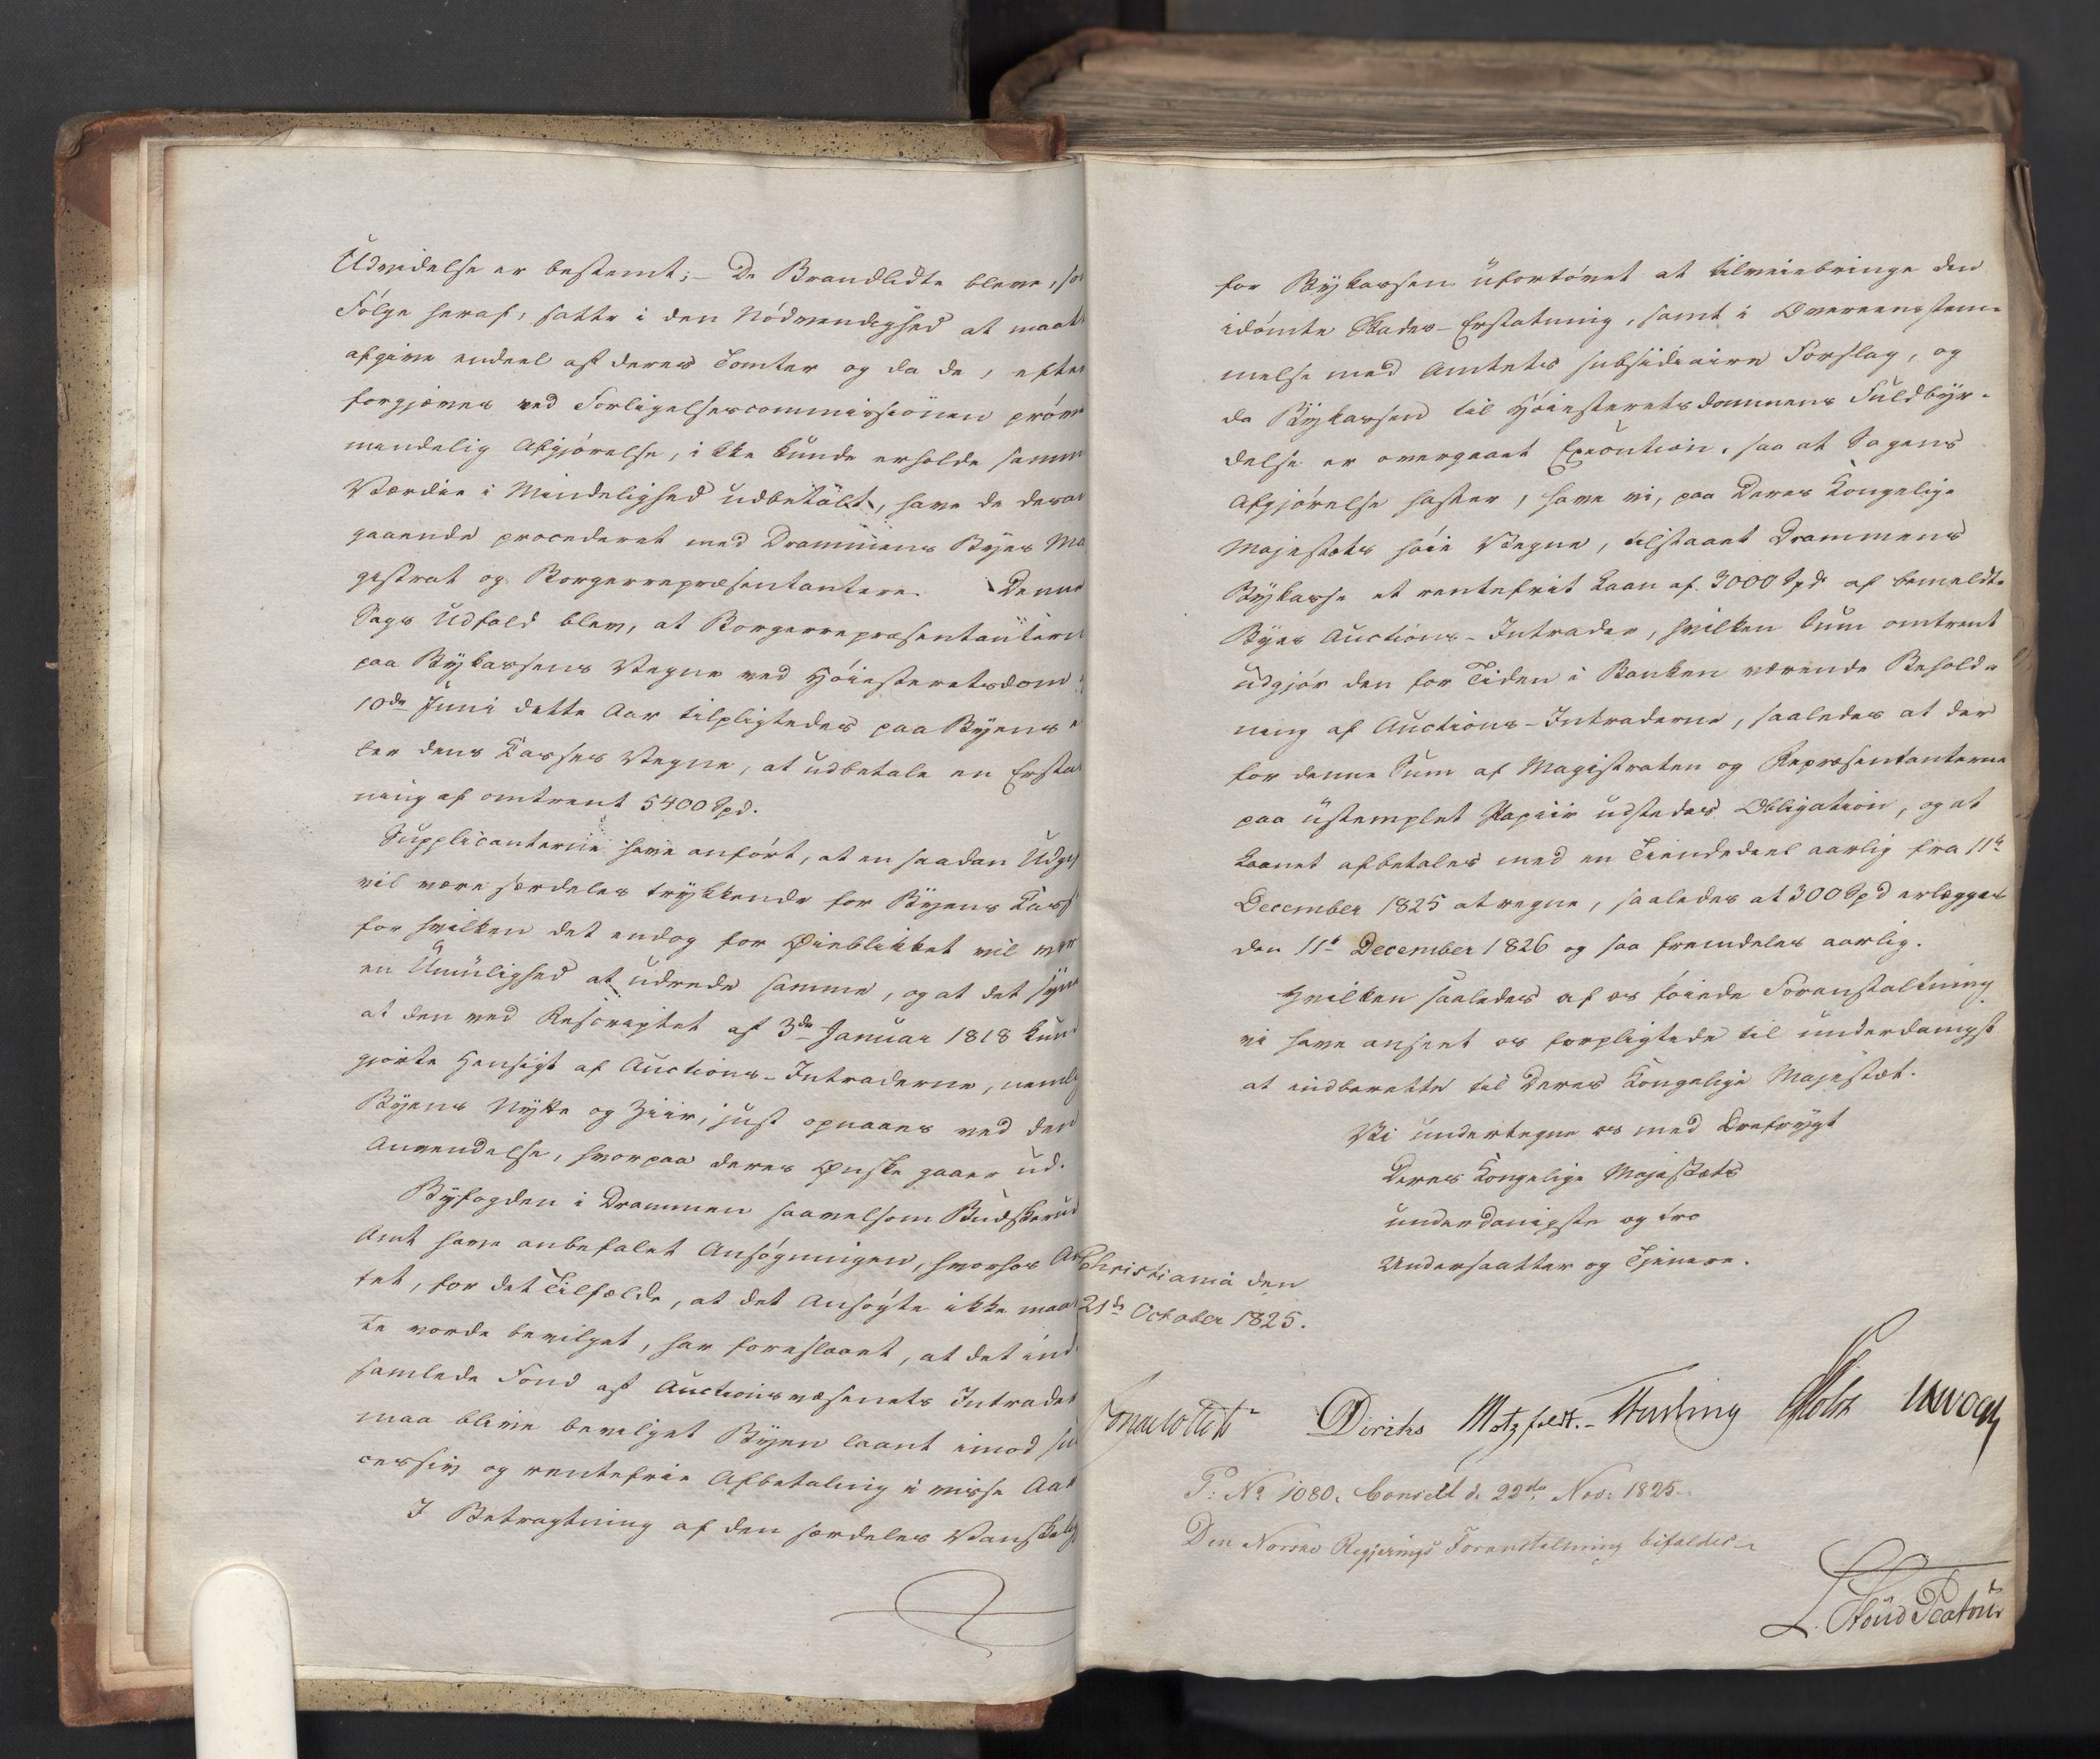 Udvidelse er bestemt; – De Brandlidte bleve, so
Følge heraf, satte i den Nödvendighed at maat
afgive endeel af deres Tomter og da de, efter
forgjæves ved Forligelsescommissionen pröve
mendelig Afgjörelse, ikke kunde erholde samm
Værdie i Mindelighed udbetalt, have de desan
gaaende procederet med Drammens Byes Ma
gistrat og Borgerrepræsentantere. Denne
Sags Udfald blev, at Borgerrepræsentantern
paa Bykassens Vegne ved Höiesteretsdom
10de Juni dette Aar tilpligtedes paa Byens e
ler dens Kasses Vegne, at udbetale en Ersta
ning af omtrent 5400 Spd.
Supplicanterne have anfört, at en saadan Udgif
vil være særdeles trykkende for Byens Kass
for hvilken det endog for Øieblikket vil vær
en Umulighed at udrede samme, og at det syne
at den ved Rescriptet af 3de Januar 1818 kund
gjorte Hensigt af Auctions-Intraderne, nemlig
Byens Nytte og Ziir, just opnaaes ved den
Anvendelse, hvorpaa deres Ønske gaaer ud.
Byfogden i Drammen saavelsom Budskerud
Amt have anbefalet Ansögningen, hvorhos Am
tet, for det Tilfælde, at det Ansögte ikke maat
te vorde bevilget, har foreslaaet, at det ind
samlede Fond af Auctionsvæsenets Intrader
maa blive bevilget Byen laant imod suc
cessiv og rentefrie Afbetaling i visse Aar
I Betragtning af den særdeles Vanskelig
for Bykassen ufortövet at tilveiebringe den
idömte Skades-Erstatning, samt i Overeensstem-
melse med Amtets subsidiaire Forslag, og
da Bykassen til Höiesteretsdommens Fuldbyr-
delse er overgaaet Execution, saa at Sagens
Afgjörelse haster, have vi, paa Deres Kongelige
Majestæts höie Vegne, tilstaaet Drammens
Bykasse et rentefrit Laan af 3000 Spd af bemeldte
Byes Auctions-Intrader, hvilken Sum omtrent
udgjör den for Tiden i Banken værende Behold-
ning af Auctions-Intraderne, saaledes at der
for denne Sum af Magistraten og Repræsentanterne
paa ustemplet Papiir udstedes Obligation, og at
Laanet afbetales med en Tiendedeel aarlig fra 11te
December 1825 at regne, saaledes at 300 Spd erlægges
den 11te December 1826 og saa fremdeles aarlig.
Hvilken saaledes af os föiede Foranstaltning
vi have anseet os forpligtede til underdanigst
at indberette til Deres Kongelige Majestæt.
Vi undertegne os med Ærefrygt
Deres Kongelige Majestæts
underdanigste og tro
Undersaatter og Tjenere.
Christiania den
21de October 1825.
Diriks Motzfeldt. Holst
P: No 1080. Conseilt d. 22de Nov: 1825.
Den Norske Regjerings Foranstaltning bifaldes